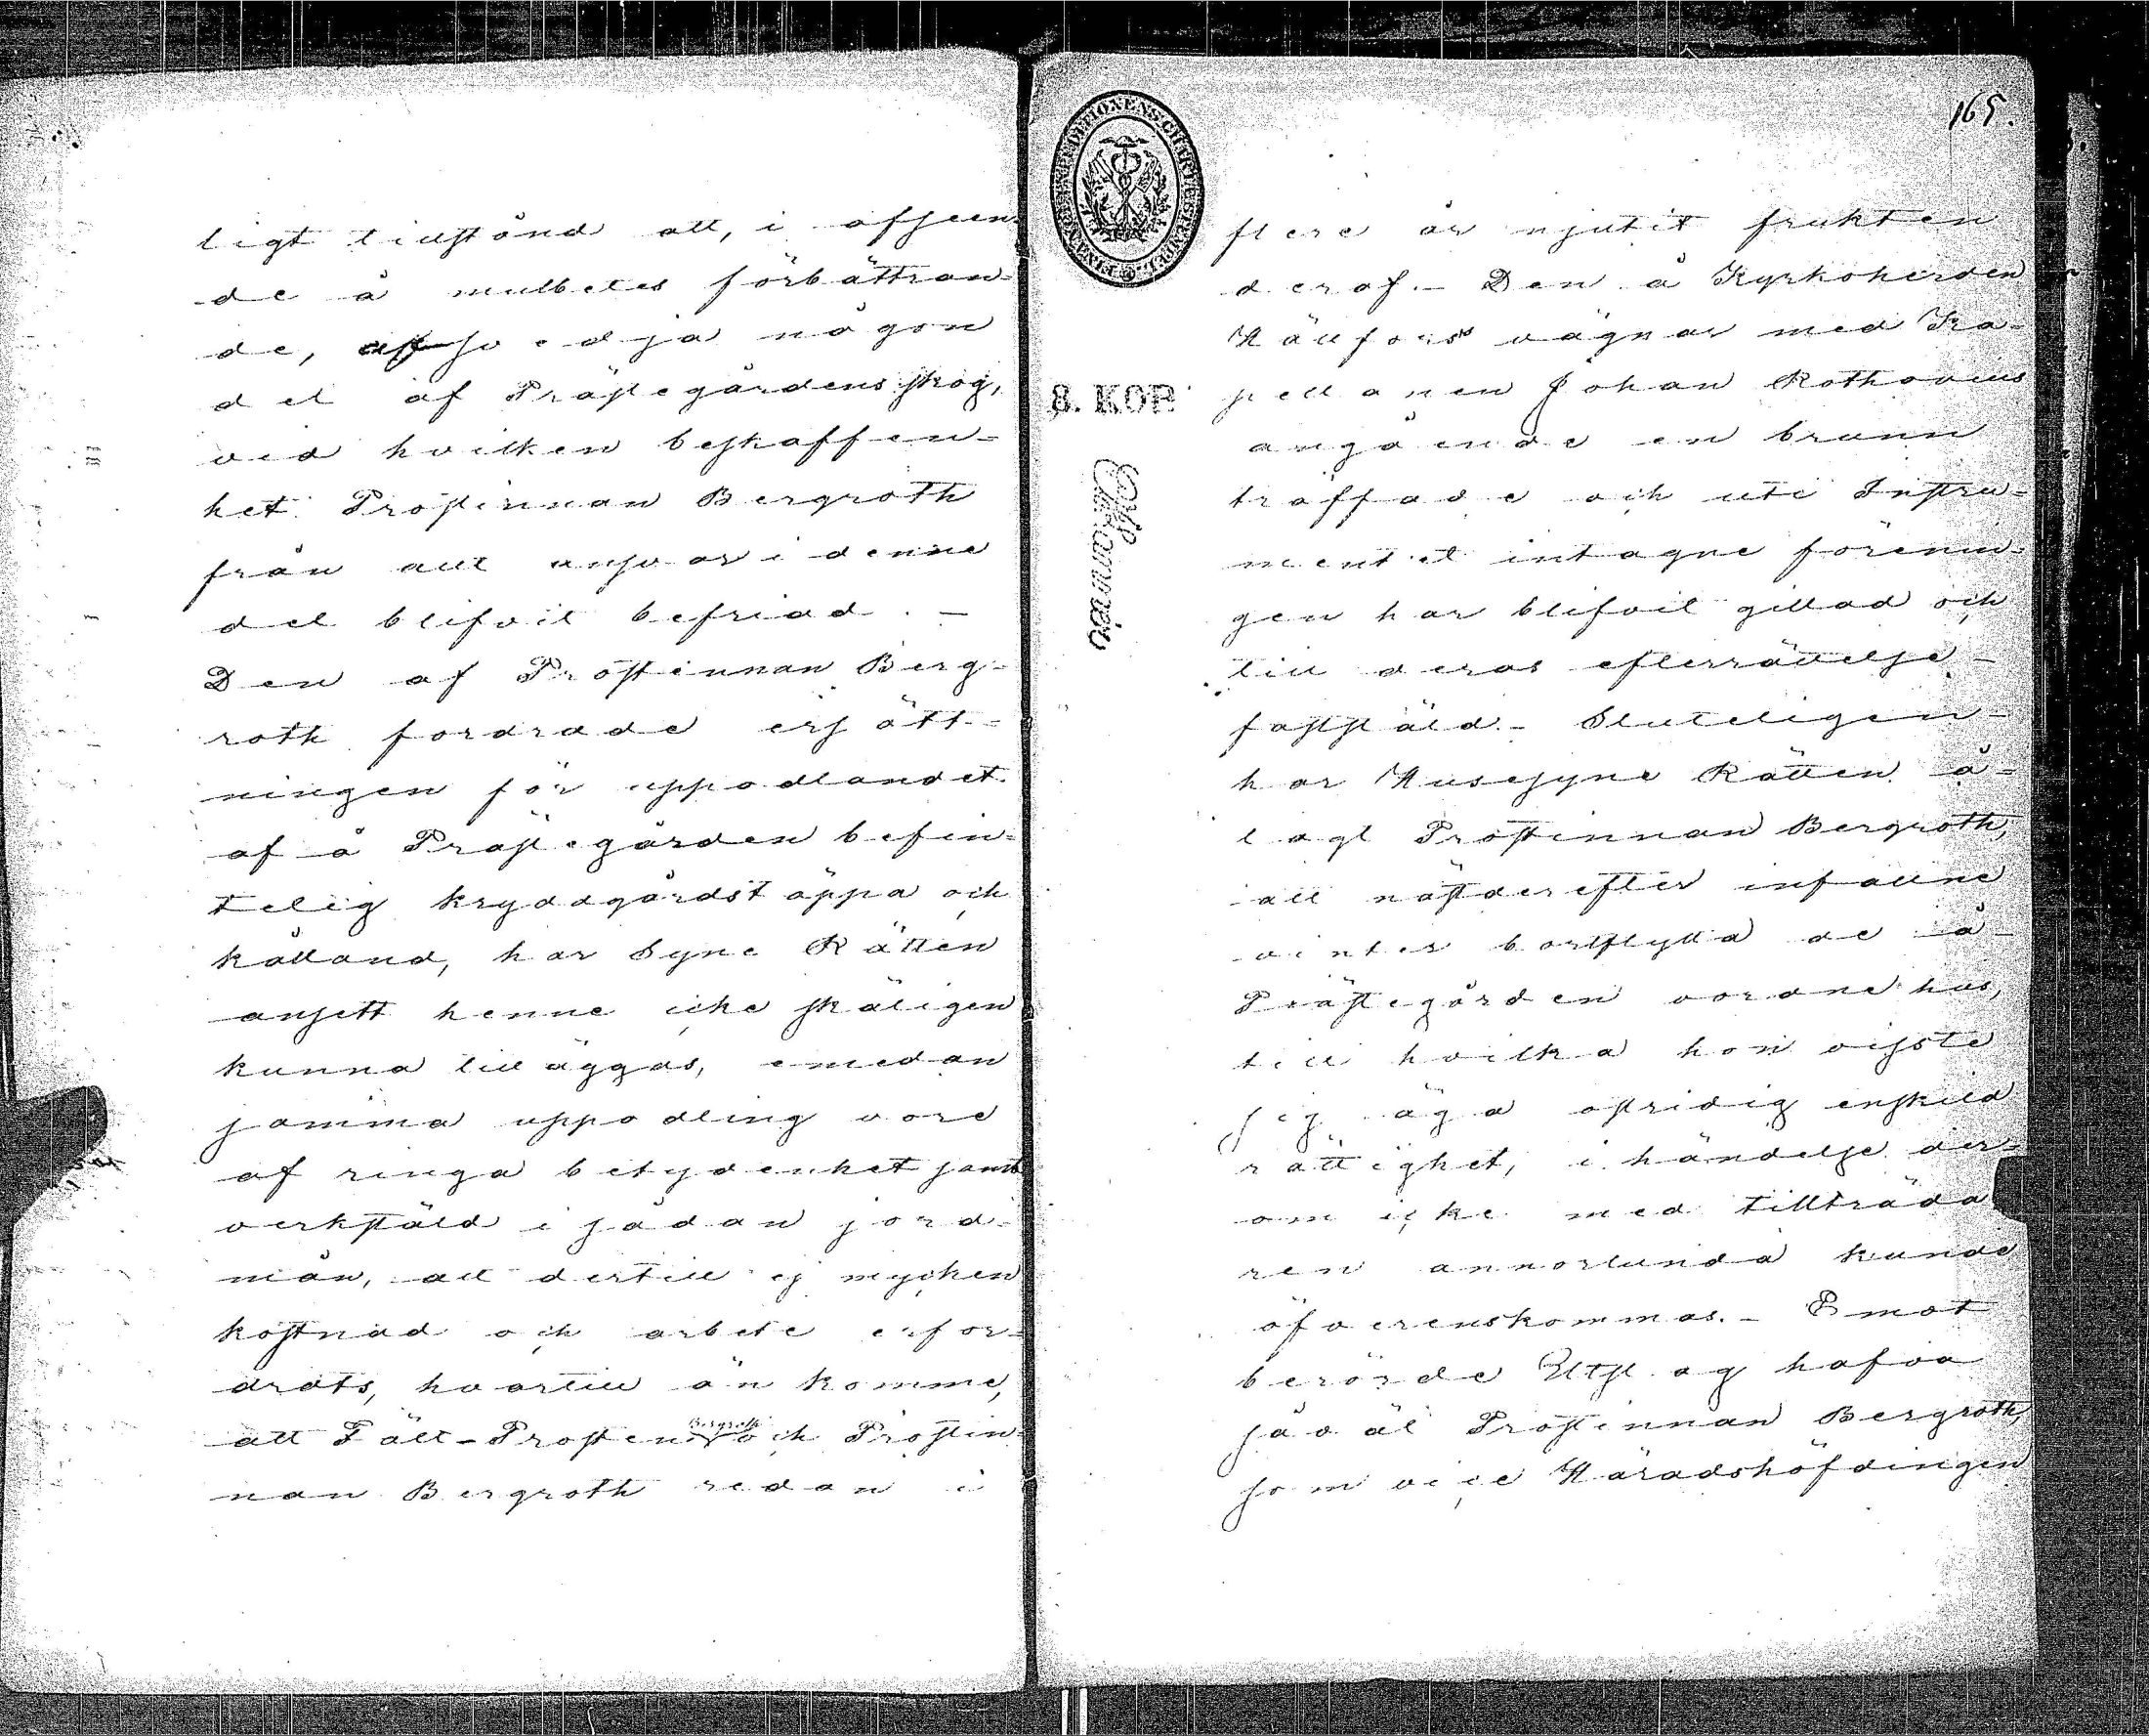 ligt tillstånd att, i afseen-
de å mulbetes förbättran-
de, afsvedja någon
del af Prästegårdens skog,
vid hvilken beskaffen-
het Prostinnan Bergroth
från allt ansvar i denne
del blifvit befriad. —
Den af Prostinnan Berg-
roth fordrade ersätt-
ningen för uppodlandet
af å Prästegården befin-
telig kryddgårdstäppa och
kålland, har Syne Rätten
ansett henne icke skäligen
kunna tilläggas, emedan
samma uppodling vore
af ringa betydenhet samt
verkstäld i sådan jord-
mån, att dertill ej mycken
kostnad och arbete erfor-
drats, hvartill än komme,
att Fält-Prosten Bergroth och Prostin-
nan Bergroth redan i
165.
8. KOP.
Charta
flere år njutit frukten
deraf. — Den å Kyrkoherden
Hällfors vägnar med Ka-
pellanen Johan Rothovius
angående en brunn
träffade och uti Instru-
mentet intagne förenin-
gen har blifvit gillad och
till deras efterrättelse
faststäld. — Sluteligen
har Husesyne Rätten å-
lagt Prostinnan Bergroth,
att nästderefter infallne
vinter bortflytta de å
Prästegården vordne hus,
till hvilka hon visste
sig äga ostridig enskild
rättighet, i händelse der-
om icke med tillträda
ren annorlunda kunde
öfverenskommas. — Emot
berörde Utslag hafva
såväl Prostinnan Bergroth,
som vice Häradshöfdingen